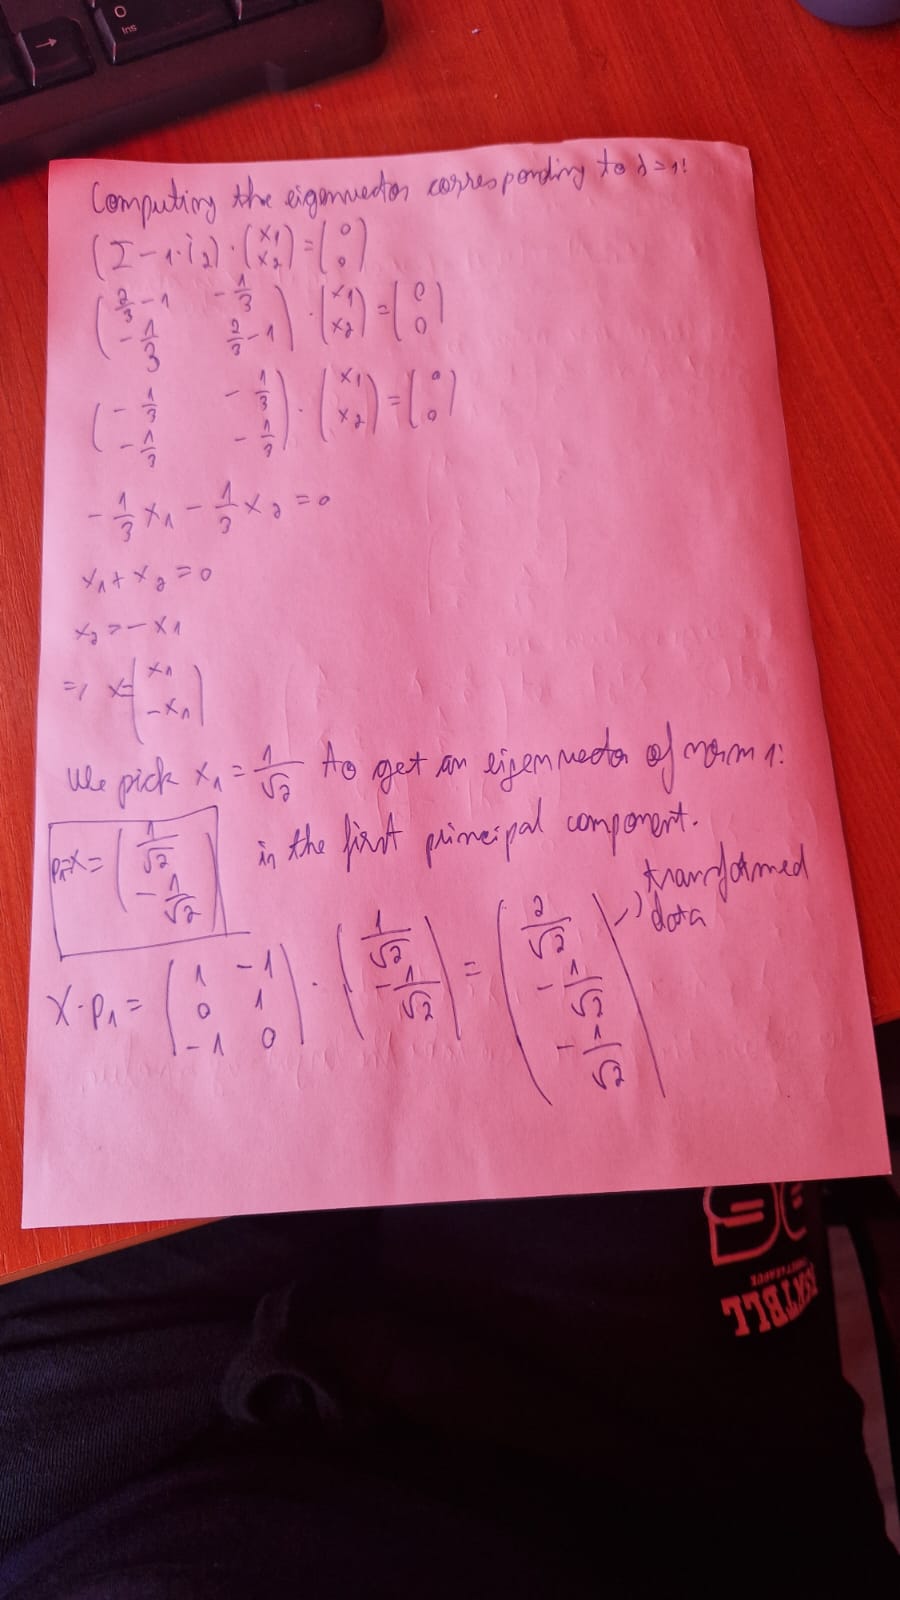 →
0
Ins
Computing the eigenvector corresponding to λ=1:
(Σ - 1·I₂)·(x₁ x₂) = (0 0)
(2/3 - 1  -1/3
-1/3  2/3 - 1) · (x₁ x₂) = (0 0)
(-1/3  -1/3
-1/3  -1/3) · (x₁ x₂) = (0 0)
-1/3 x₁ - 1/3 x₂ = 0
x₁ + x₂ = 0
x₂ = -x₁
=> x = (x₁ -x₁)
We pick x₁ = 1/√2 to get an eigenvector of norm 1:
p₁=x= (1/√2 -1/√2) is the first principal component.
X·p₁ = (1 -1
0 1
-1 0) · (1/√2 -1/√2) = (2/√2 -1/√2 -1/√2) -> transformed
data